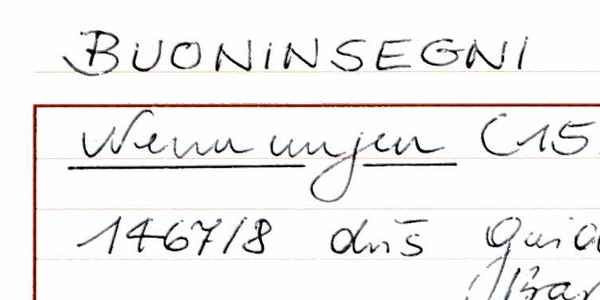 BUONINSEGNI
Nennungen (15
1467/8 dns̄ Guid
Bar